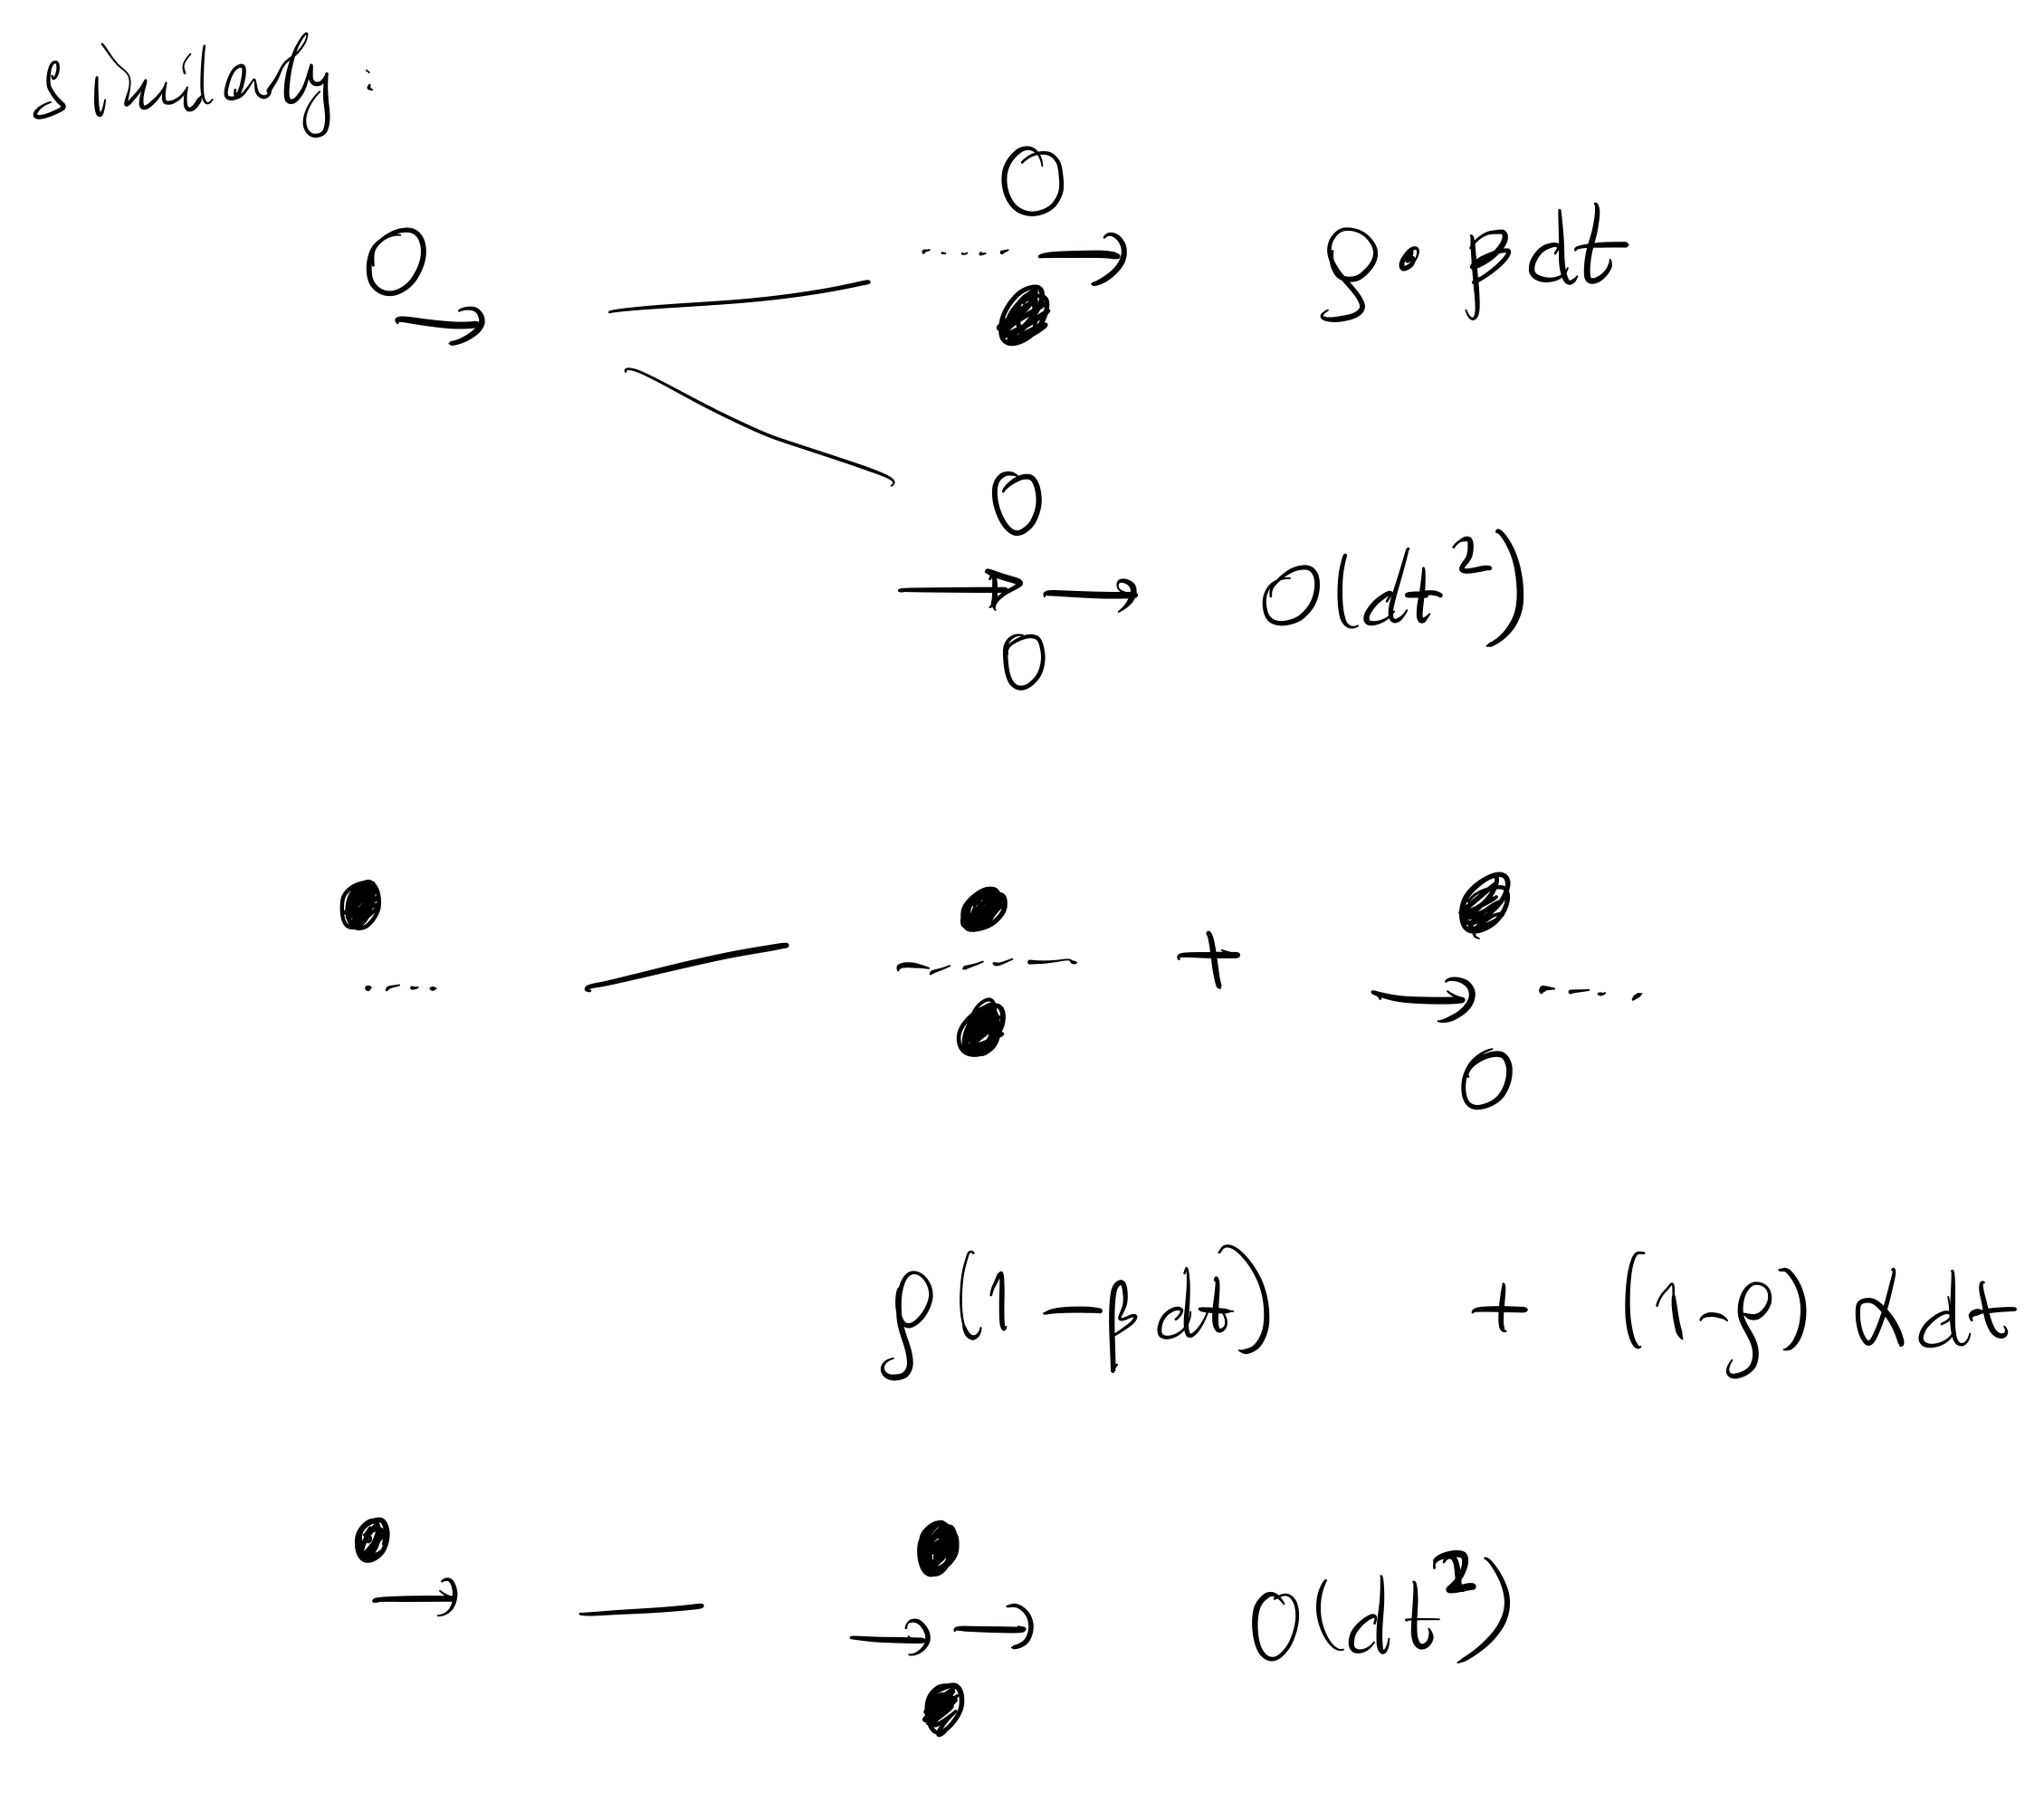 Similarly:
ρ · β dt
O(dt²)
+
ρ(1 - β dt) + (1-ρ) α dt
O(dt²)